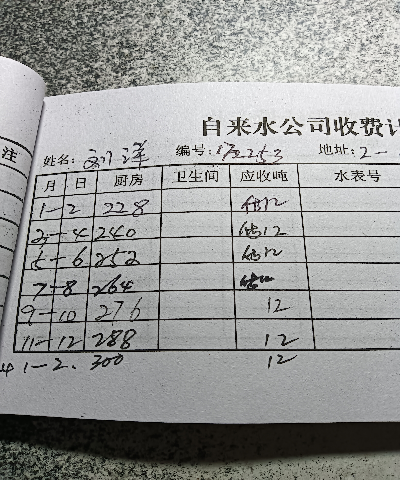 注
自来水公司收费计
姓名: 刘洋 编号: 253 地址: 2-
月 日 厨房 卫生间 应收吨 水表号
1-2 228 估12
3-4 240 估12
5-6 252 估12
7-8 264
9-10 276 12
11-12 288 12
1-2. 300 12